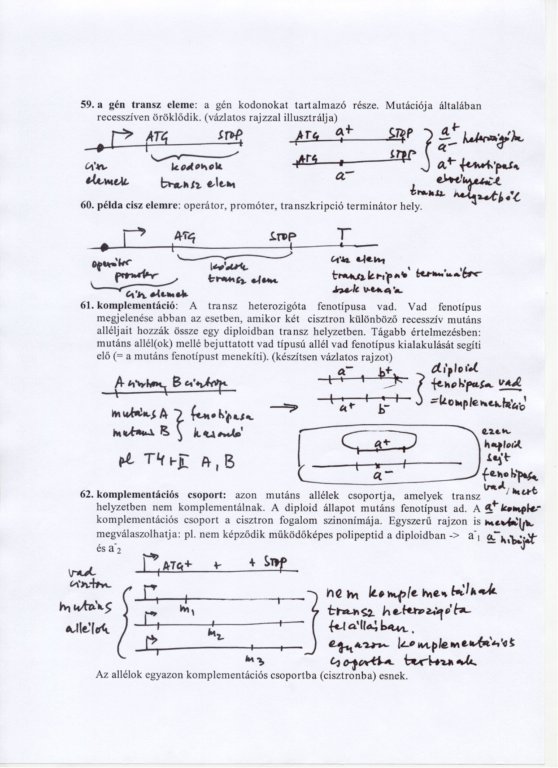 59. a gén transz eleme: a gén kodonokat tartalmazó része. Mutációja általában
recesszíven öröklődik. (vázlatos rajzzal illusztrálja)
ATG STOP
cisz elemek
kodonok
transz elem
ATG a+ STOP
ATG STOP
a-
a+
a- heterozigóta
a+ fenotípusa
érvényesül
transz helyzetből
60. példa cisz elemre: operátor, promóter, transzkripció terminátor hely.
ATG STOP T
operátor
promoter
cisz elemek
kódoló
transz elem
cisz elem
transzkripció terminátor
szekvencia
61. komplementáció: A transz heterozigóta fenotípusa vad. Vad fenotípus
megjelenése abban az esetben, amikor két cisztron különböző recesszív mutáns
alléljait hozzák össze egy diploidban transz helyzetben. Tágabb értelmezésben:
mutáns allél(ok) mellé bejuttatott vad típusú allél vad fenotípus kialakulását segíti
elő (= a mutáns fenotípust menekíti). (készítsen vázlatos rajzot)
A cisztron B cisztron
mutáns A
mutáns B
fenotípusa
hasonló
pl T4 rII A, B
a- b+
a+ b-
diploid
fenotípusa vad
=komplementáció
a+
a-
ezen
haploid
sejt
fenotípusa
vad, mert
a+ komple-
mentálja
a- hibáját
62. komplementációs csoport: azon mutáns allélek csoportja, amelyek transz
helyzetben nem komplementálnak. A diploid állapot mutáns fenotípust ad. A
komplementációs csoport a cisztron fogalom szinonímája. Egyszerű rajzon is
megválaszolhatja: pl. nem képződik működőképes polipeptid a diploidban -> a-1
és a-2
vad
cisztron
ATG+ + + STOP
mutáns
allélok
m1
m2
m3
nem komplementálnak
transz heterozigóta
felállásban.
egyazon komplementációs
csoportba tartoznak
Az allélok egyazon komplementációs csoportba (cisztronba) esnek.